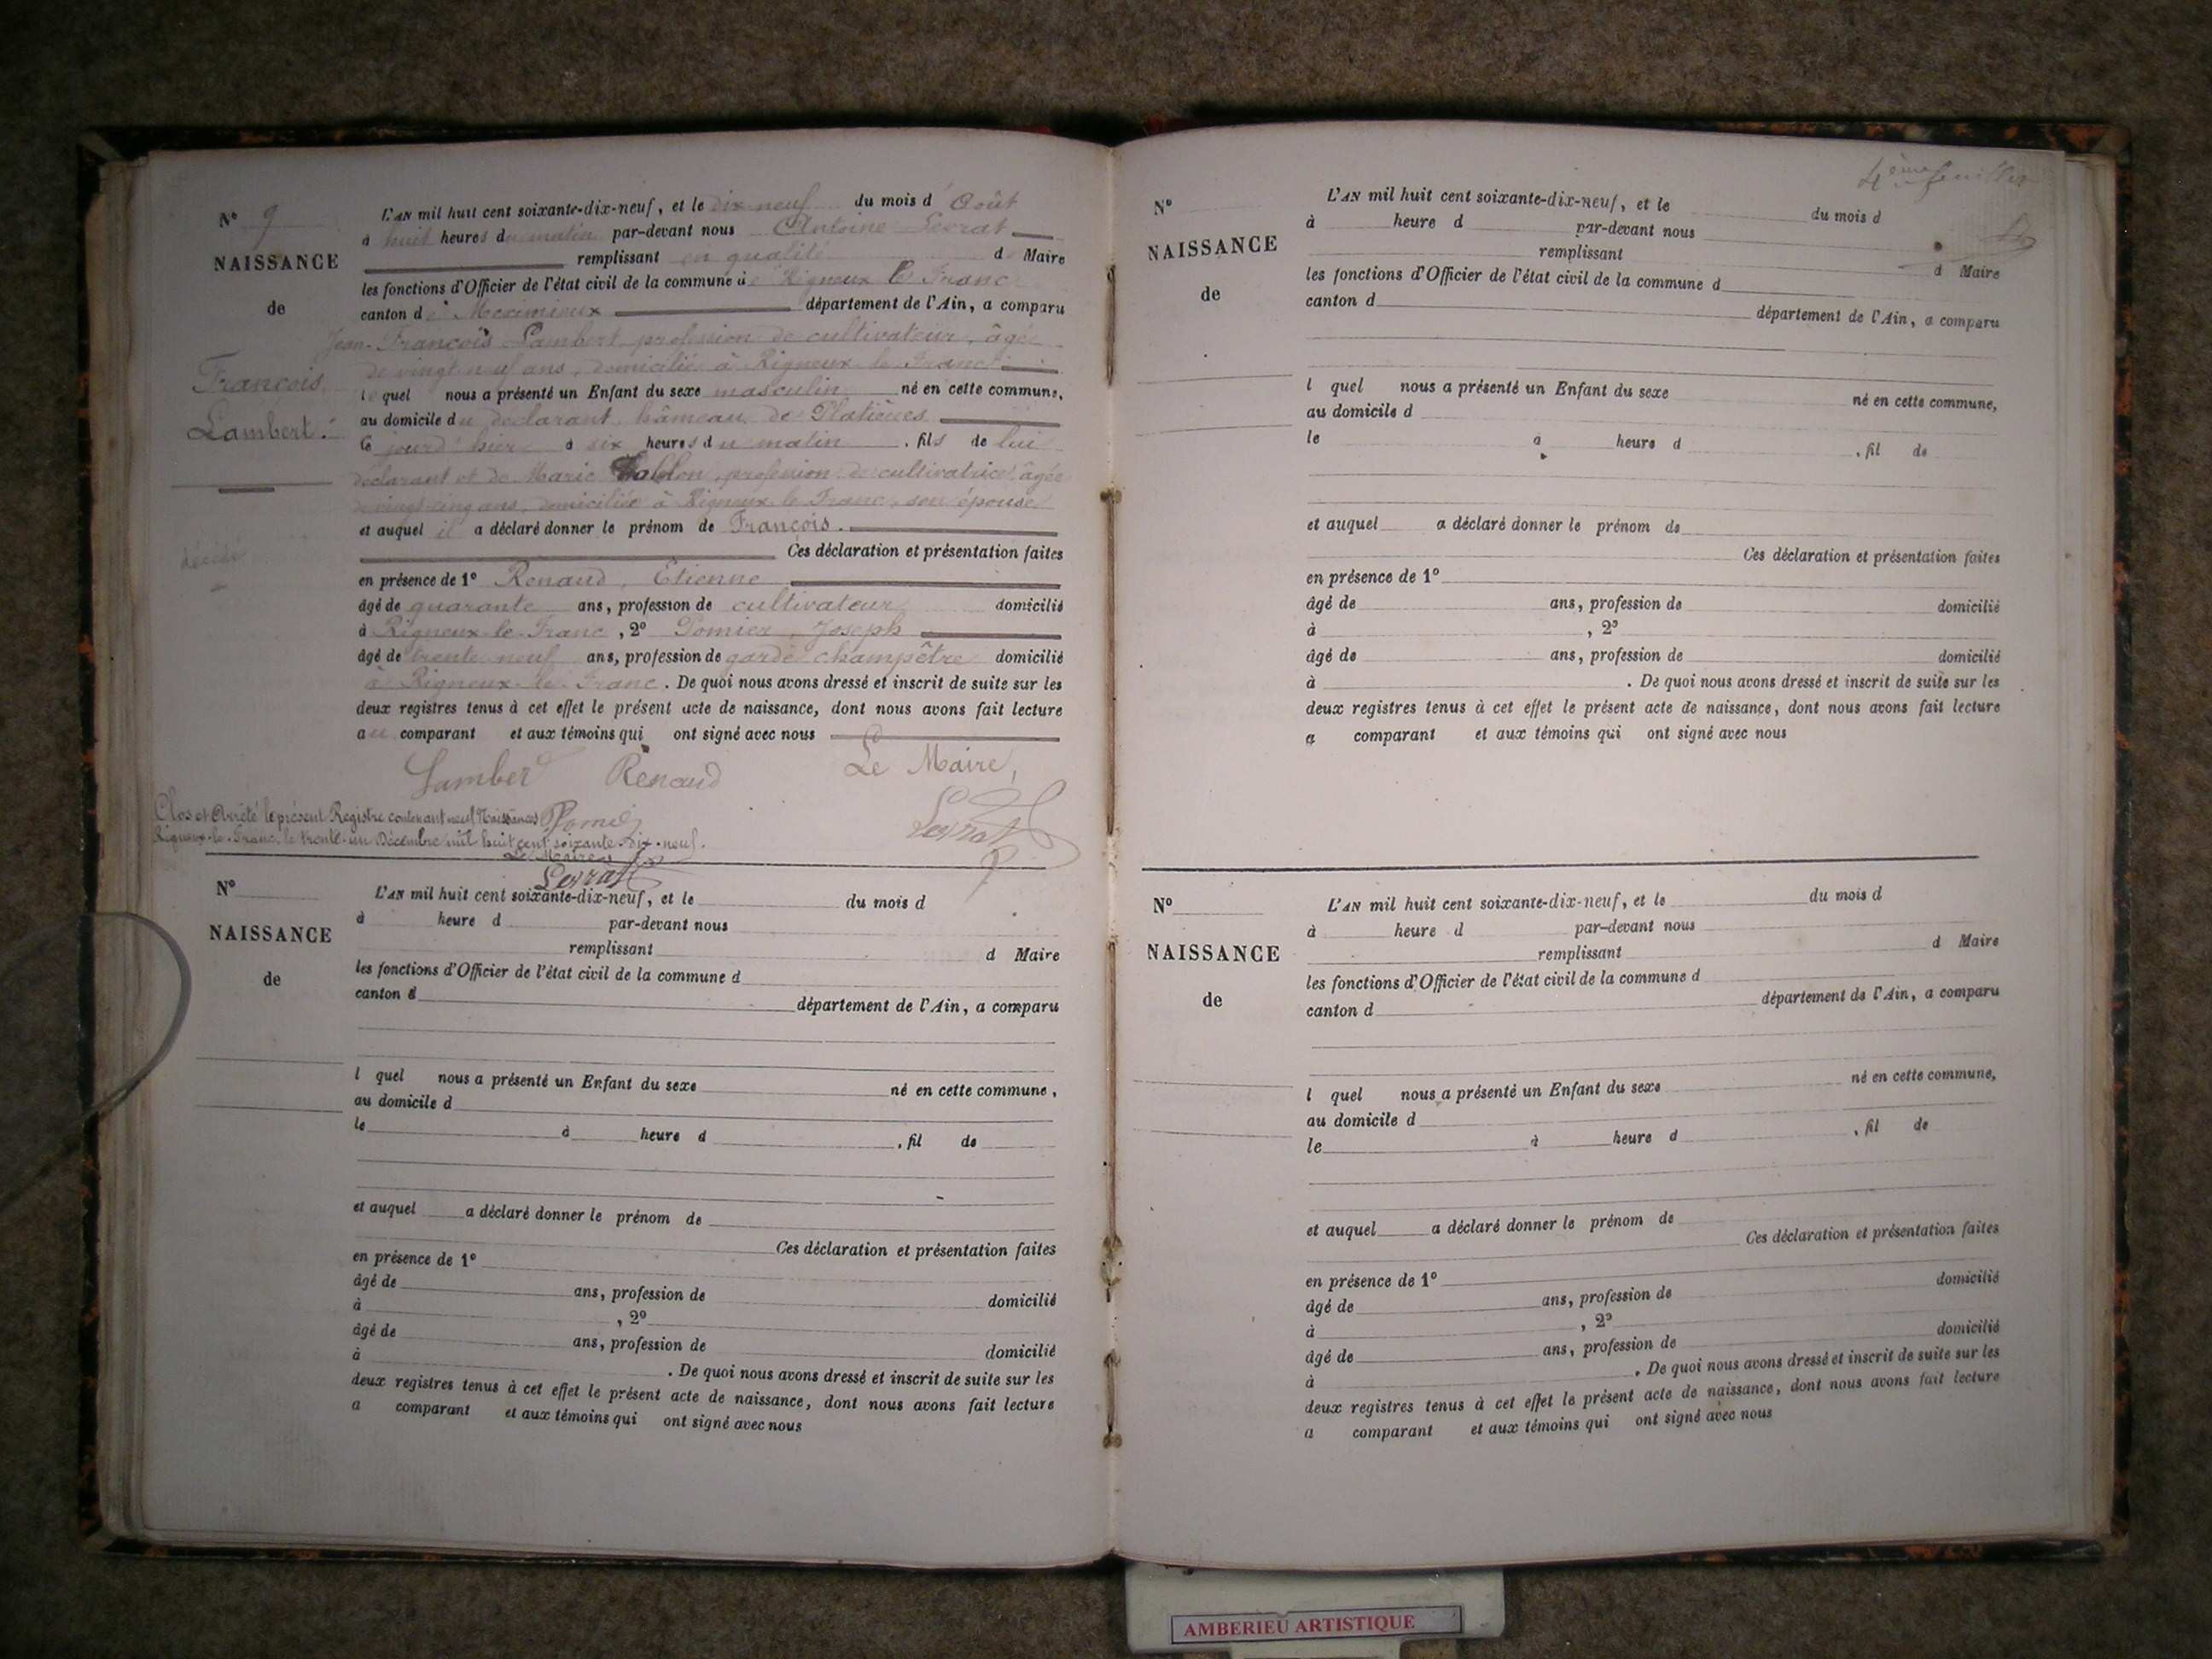 N° 9
NAISSANCE
de
François
Lambert.
décédé
L'AN mil huit cent soixante-dix-neuf, et le dix neuf du mois d'Août
à huit heures du matin par-devant nous Antoine Levrat
remplissant en qualité de Maire
les fonctions d'Officier de l'état civil de la commune de Rigneux le Franc
canton de Meximieux département de l'Ain, a comparu
Jean-François Lambert, profession de cultivateur, âgé
de vingt neuf ans, domicilié à Rigneux-le-Franc
lequel nous a présenté un Enfant du sexe masculin né en cette commune,
au domicile du déclarant, hâmeau de Platières
le jourd'hier à six heures du matin, fils de lui
déclarant et de Marie, profession de cultivatrice, âgée
de vingt cinq ans, domiciliée à Rigneux-le-Franc, son épouse
et auquel il a déclaré donner le prénom de François.
Ces déclaration et présentation faites
en présence de 1° Renaud, Etienne
âgé de quarante ans, profession de cultivateur domicilié
à Rigneux-le-Franc, 2° Pomier, Joseph
âgé de trente neuf ans, profession de garde champêtre domicilié
à Rigneux-le-Franc. De quoi nous avons dressé et inscrit de suite sur les
deux registres tenus à cet effet le présent acte de naissance, dont nous avons fait lecture
au comparant et aux témoins qui ont signé avec nous
Lambert Renaud Le Maire,
Pomier Levrat
Clos et Arrêté le présent Registre contenant neuf Naissances
Rigneux-le-Franc, le trente-un Décembre mil huit cent soixante-dix-neuf.
Le Maire
Levrat
N°
NAISSANCE
de
L'AN mil huit cent soixante-dix-neuf, et le du mois d
à heure d par-devant nous
remplissant d Maire
les fonctions d'Officier de l'état civil de la commune d
canton d département de l'Ain, a comparu
l quel nous a présenté un Enfant du sexe né en cette commune,
au domicile d
le à heure d , fil de
et auquel a déclaré donner le prénom de
Ces déclaration et présentation faites
en présence de 1°
âgé de ans, profession de domicilié
à , 2°
âgé de ans, profession de domicilié
à . De quoi nous avons dressé et inscrit de suite sur les
deux registres tenus à cet effet le présent acte de naissance, dont nous avons fait lecture
a comparant et aux témoins qui ont signé avec nous
4ème feuillet
N°
NAISSANCE
de
L'AN mil huit cent soixante-dix-neuf, et le du mois d
à heure d par-devant nous
remplissant d Maire
les fonctions d'Officier de l'état civil de la commune d
canton d département de l'Ain, a comparu
l quel nous a présenté un Enfant du sexe né en cette commune,
au domicile d
le à heure d , fil de
et auquel a déclaré donner le prénom de
Ces déclaration et présentation faites
en présence de 1°
âgé de ans, profession de domicilié
à , 2°
âgé de ans, profession de domicilié
à . De quoi nous avons dressé et inscrit de suite sur les
deux registres tenus à cet effet le présent acte de naissance, dont nous avons fait lecture
a comparant et aux témoins qui ont signé avec nous
N°
NAISSANCE
de
L'AN mil huit cent soixante-dix-neuf, et le du mois d
à heure d par-devant nous
remplissant d Maire
les fonctions d'Officier de l'état civil de la commune d
canton d département de l'Ain, a comparu
l quel nous a présenté un Enfant du sexe né en cette commune,
au domicile d
le à heure d , fil de
et auquel a déclaré donner le prénom de
Ces déclaration et présentation faites
en présence de 1°
âgé de ans, profession de domicilié
à , 2°
âgé de ans, profession de domicilié
à . De quoi nous avons dressé et inscrit de suite sur les
deux registres tenus à cet effet le présent acte de naissance, dont nous avons fait lecture
a comparant et aux témoins qui ont signé avec nous
AMBERIEU ARTISTIQUE